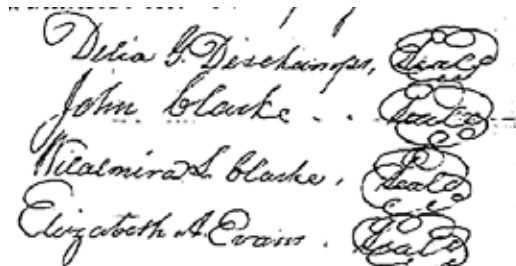 Delia G. Deschamps, Seal
John Clarke . . Seal
S. Clarke . Seal
Elizabeth A. Evans . Seal